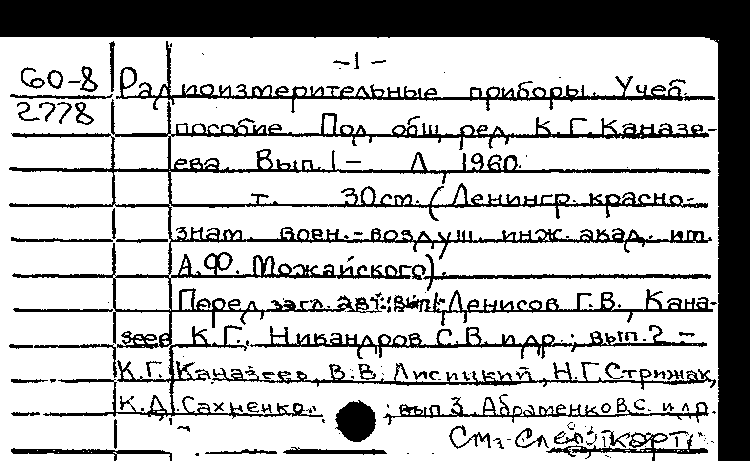 -1-
60-8 Радиоизмерительные приборы. Учеб.
2778 пособие. Под общ. ред. К.Г. Каназе-
ева. Вып. 1- Л., 1960.
т. 30 см. (Ленингр. красно-
знам. воен.-воздуш. инж. акад. им.
А.Ф. Можайского).
Перед загл. авт.: вып. 1- Денисов Г.В., Кана-
зеев К.Г., Никандров С.В. и др.; вып. 2 -
К.Г. Каназеев, В.В. Лисицкий, Н.Г. Стрижак,
К.Д. Сахненко. ; вып 3. Абраменков В.С. и др.
См. след. карт.